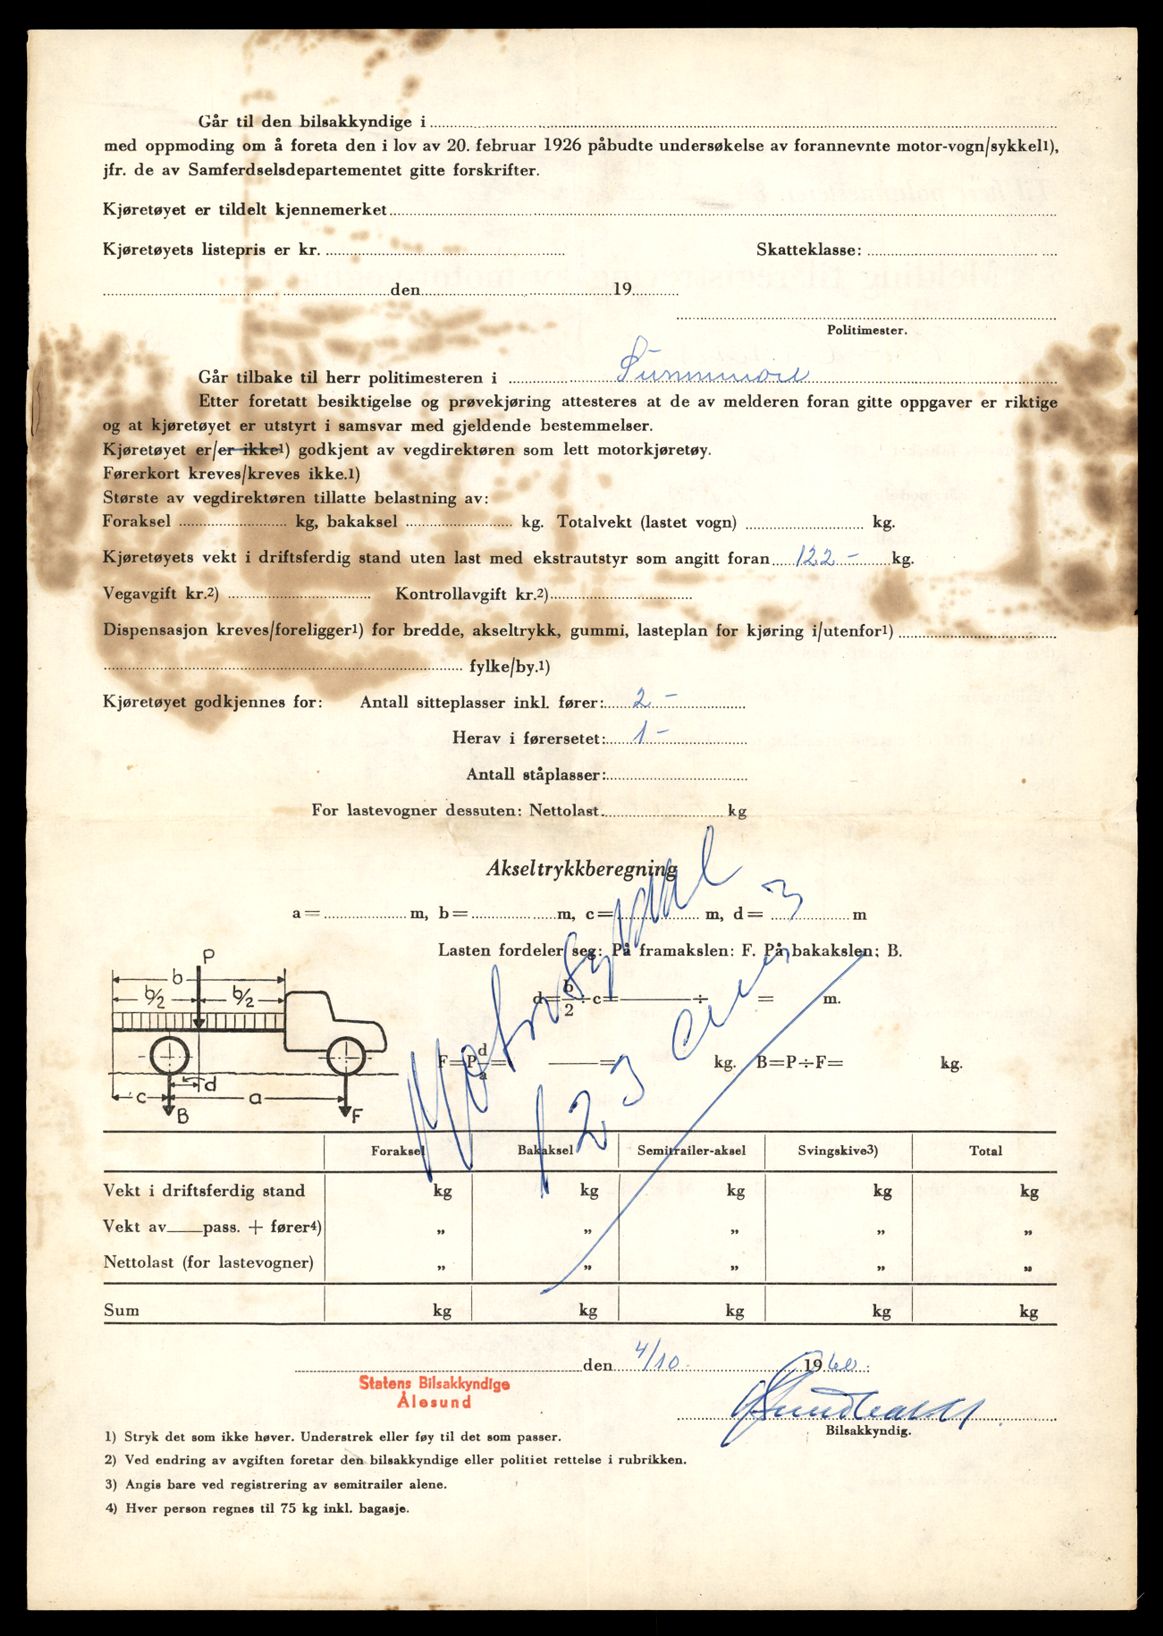 Går til den bilsakkyndige i
med oppmoding om å foreta den i lov av 20. februar 1926 påbudte undersøkelse av forannevnte motor-vogn/sykkel1),
jfr. de av Samferdselsdepartementet gitte forskrifter.
Kjøretøyet er tildelt kjennemerket
Kjøretøyets listepris er kr. Skatteklasse:
den 19
Politimester.
Går tilbake til herr politimesteren i Sunnmøre
Etter foretatt besiktigelse og prøvekjøring attesteres at de av melderen foran gitte oppgaver er riktige
og at kjøretøyet er utstyrt i samsvar med gjeldende bestemmelser.
Kjøretøyet er/er ikke1) godkjent av vegdirektøren som lett motorkjøretøy.
Førerkort kreves/kreves ikke.1)
Største av vegdirektøren tillatte belastning av:
Foraksel kg, bakaksel kg. Totalvekt (lastet vogn) kg.
Kjøretøyets vekt i driftsferdig stand uten last med ekstrautstyr som angitt foran 122 - kg.
Vegavgift kr.2) Kontrollavgift kr.2)
Dispensasjon kreves/foreligger1) for bredde, akseltrykk, gummi, lasteplan for kjøring i/utenfor1)
fylke/by.1)
Kjøretøyet godkjennes for: Antall sitteplasser inkl. fører: 2 -
Herav i førersetet: 1 -
Antall ståplasser:
For lastevogner dessuten: Nettolast kg
Akseltrykkberegning
a= m, b= m, c= m, d= m
Lasten fordeler seg: På framakslen: F. På bakakslen: B.
d=b/2÷c= ÷ = m.
F=P d/a= = kg. B=P÷F= kg.
Motorsykkel
123 cm3
P
b
b/2 b/2
d
c a
B F
Foraksel Bakaksel Semitrailer-aksel Svingskive3) Total
Vekt i driftsferdig stand kg kg kg kg kg
Vekt av pass. + fører4) „ „ „ „ „
Nettolast (for lastevogner) „ „ „ „ „
Sum kg kg kg kg kg
den 4/10. 1960.
Statens Bilsakkyndige
Ålesund
Bilsakkyndig.
1) Stryk det som ikke høver. Understrek eller føy til det som passer.
2) Ved endring av avgiften foretar den bilsakkyndige eller politiet rettelse i rubrikken.
3) Angis bare ved registrering av semitrailer alene.
4) Hver person regnes til 75 kg inkl. bagasje.